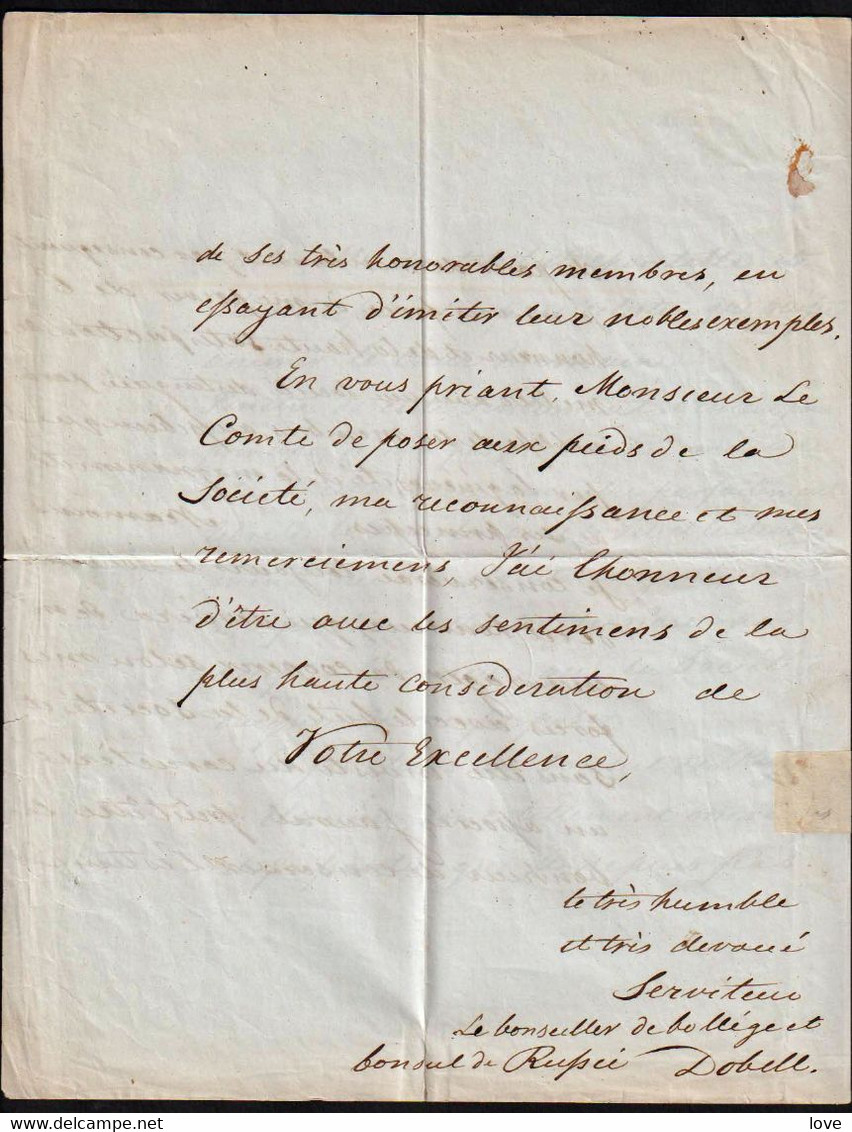 de ses très honorables membres, en
essayant d'imiter leur nobles exemples.
En vous priant, Monsieur Le
Comte de poser aux pieds de la
Société, ma reconnaissance et mes
remerciemens, J'ai l'honneur
d'être avec les sentimens de la
plus haute consideration de
Votre Excellence,
le très humble
et très devoué
Serviteur
Le Conseiller de Collége et
Consul de Russie Dobell.
love
love